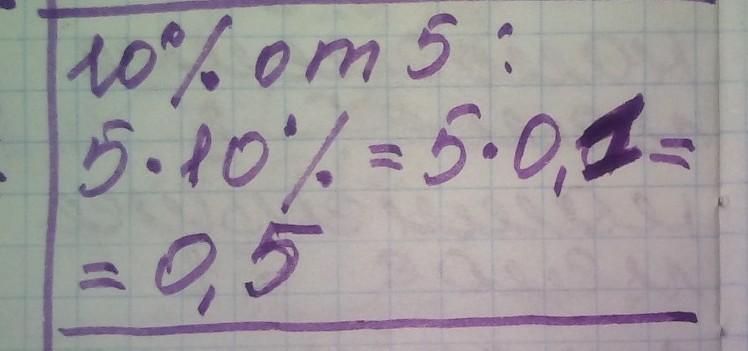 10% от 5:
5·10% = 5·0,1 =
= 0,5